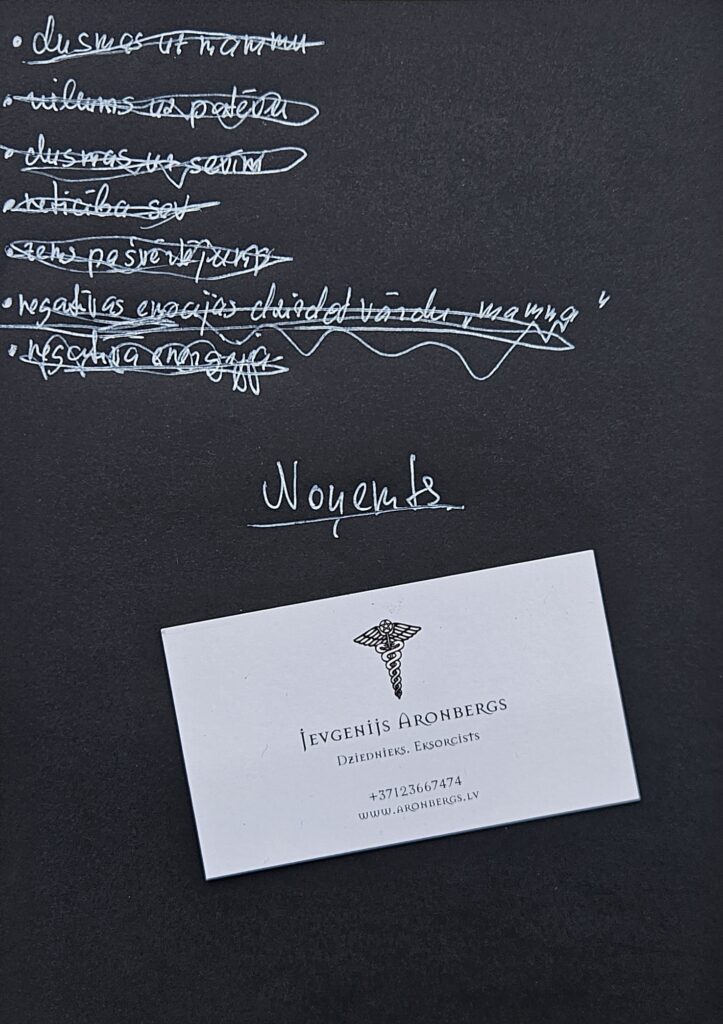 • dusmas uz mammu
• vilums uz patēvu
• dusmas uz sevim
• neticība sev
• zems pašvērtējums
• negatīvas emocijas dzirdot vārdu „mamma“
• negatīva enerģija
Noņemts.
Jevgenijs Aronbergs
Dziednieks, Eksorcists
+37123667474
www.aronbergs.lv